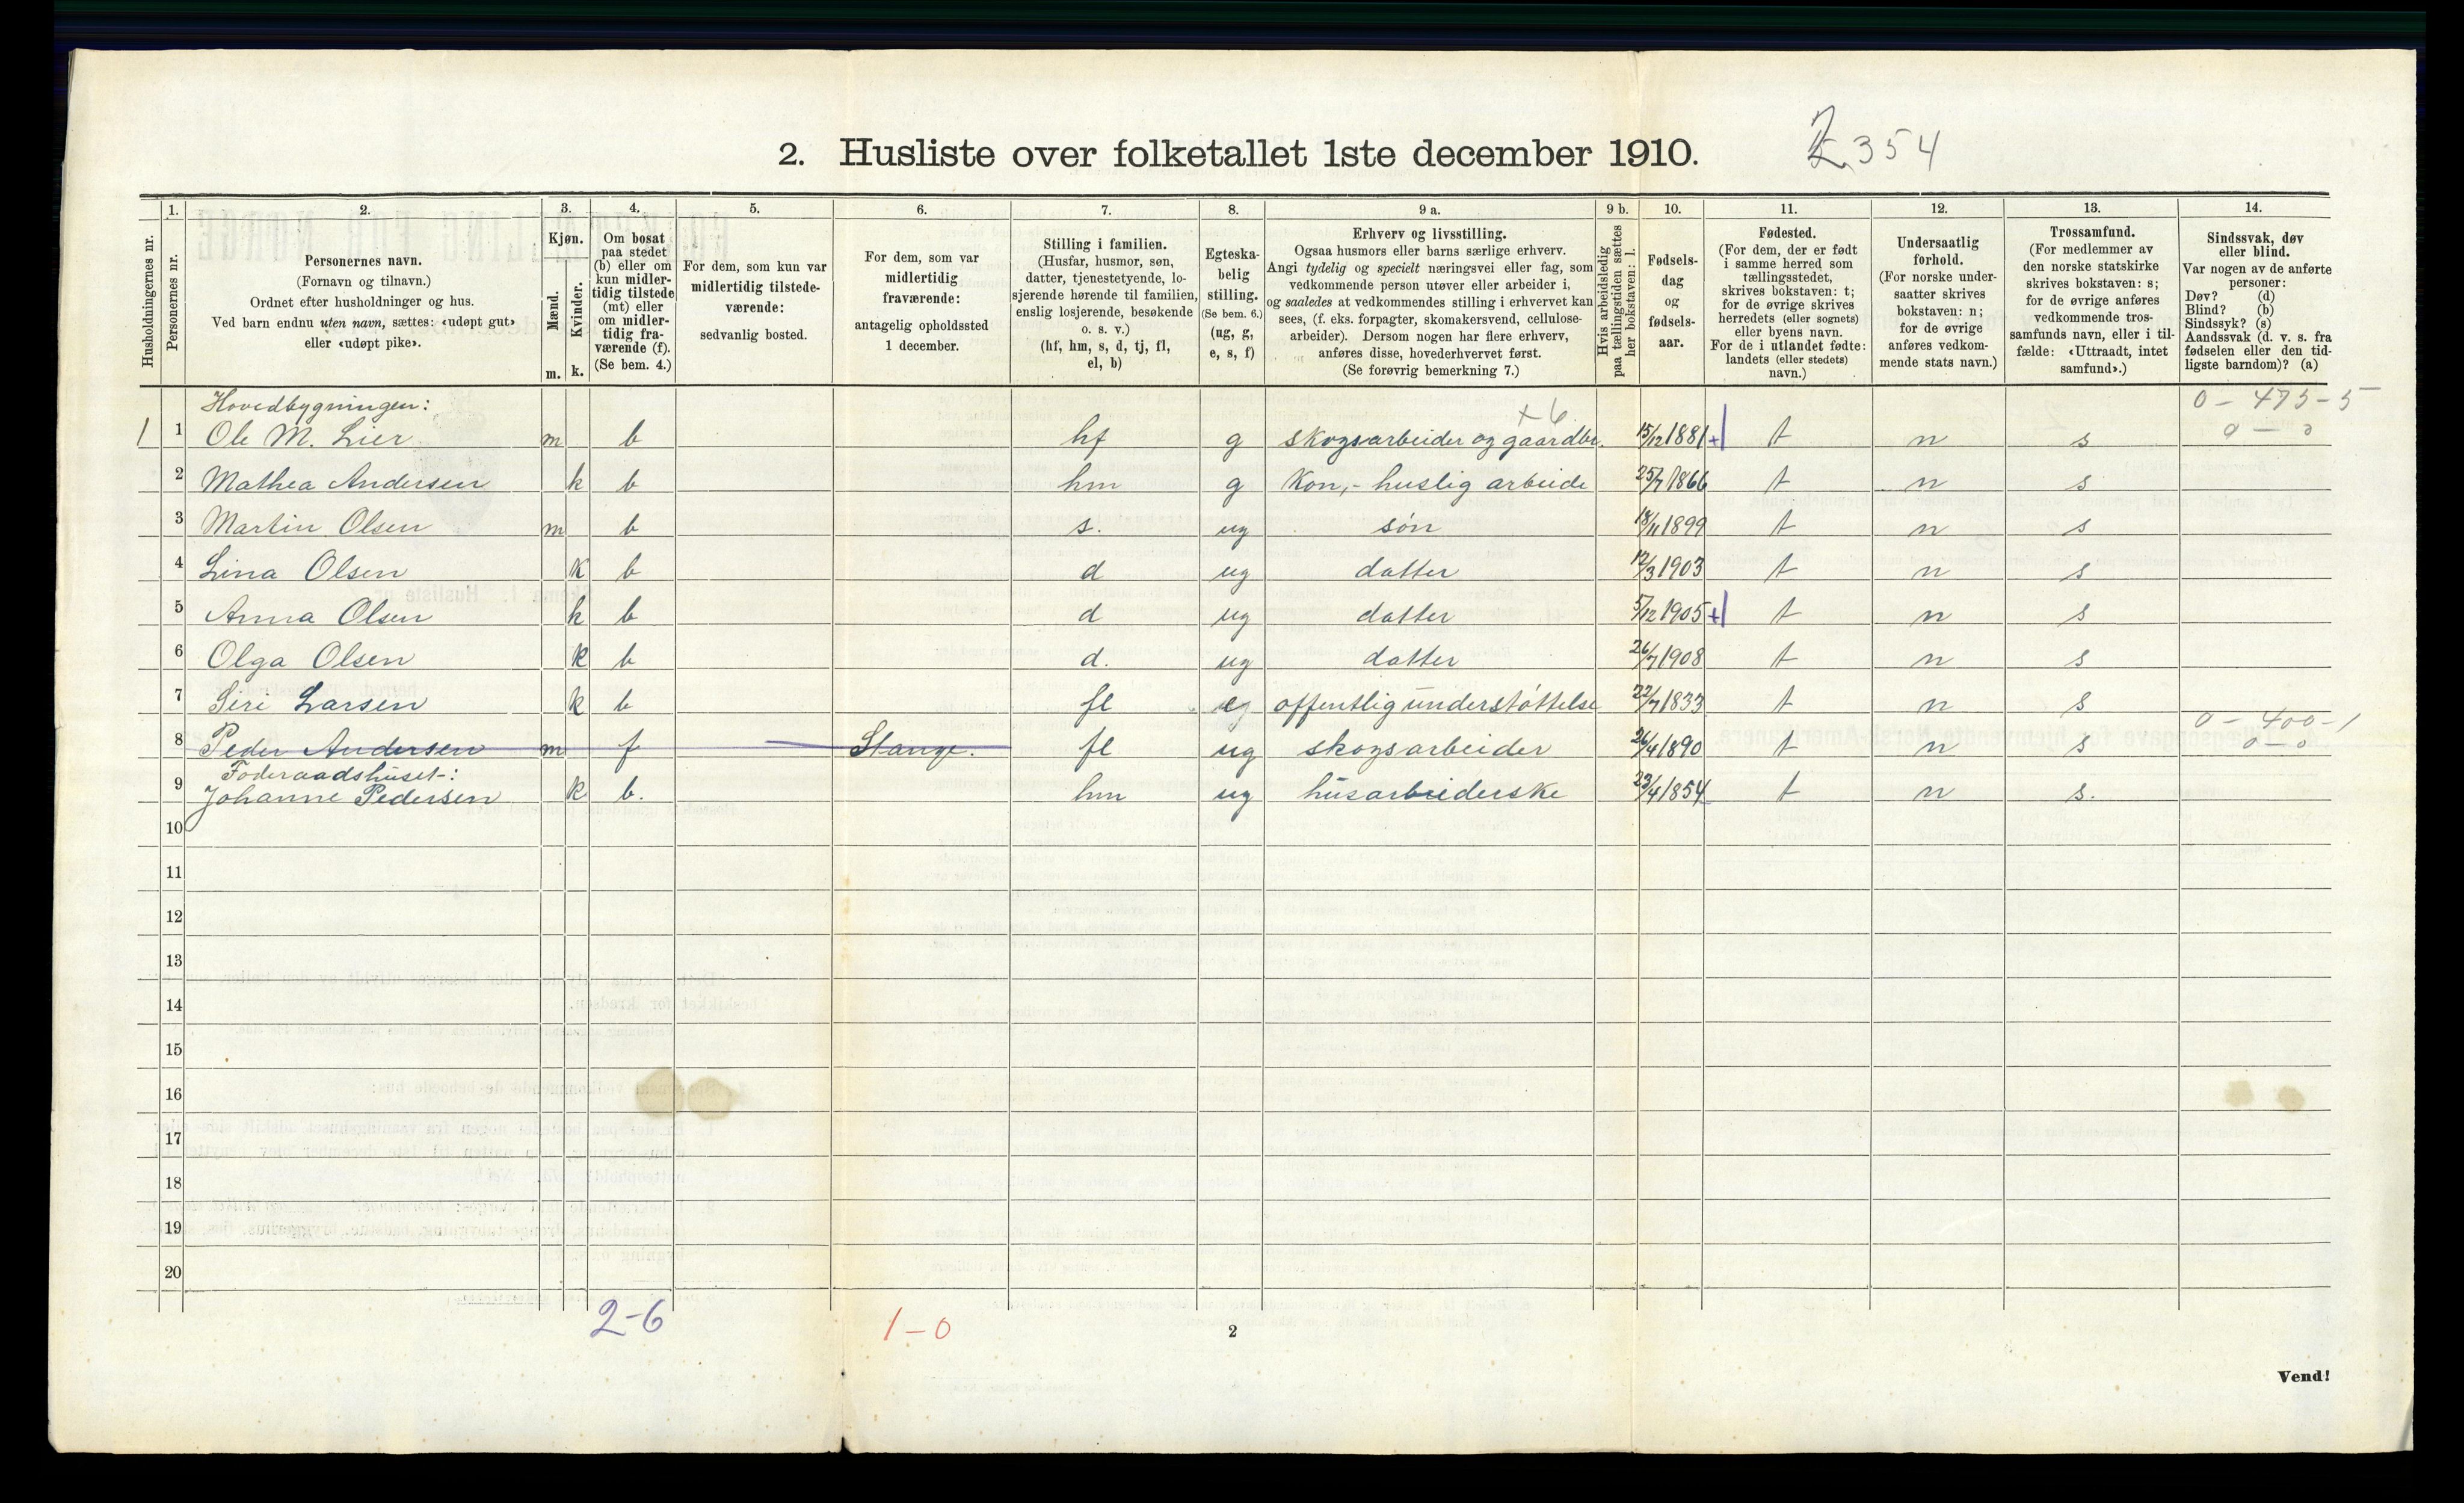 2. Husliste over folketallet 1ste december 1910.
354
1. 2. 3. 4. 5. 6. 7. 8. 9 a. 9 b. 10. 11. 12. 13. 14.
Husholdningernes nr.
Personernes nr.
Personernes navn.
(Fornavn og tilnavn.)
Ordnet efter husholdninger og hus.
Ved barn endnu uten navn, sættes: «udøpt gut»
eller «udøpt pike».
Kjøn.
Mænd.
Kvinder.
m. k.
Om bosat
paa stedet
(b) eller om
kun midler-
tidig tilstede
(mt) eller
om midler-
tidig fra-
værende (f).
(Se bem. 4.)
For dem, som kun var
midlertidig tilstede-
værende:
sedvanlig bosted.
For dem, som var
midlertidig
fraværende:
antagelig opholdssted
1 december.
Stilling i familien.
(Husfar, husmor, søn,
datter, tjenestetyende, lo-
sjerende hørende til familien,
enslig losjerende, besøkende
o. s. v.)
(hf, hm, s, d, tj, fl,
el, b)
Egteska-
belig
stilling.
(Se bem. 6.)
(ug, g,
e, s, f)
Erhverv og livsstilling.
Ogsaa husmors eller barns særlige erhverv.
Angi tydelig og specielt næringsvei eller fag, som
vedkommende person utøver eller arbeider i,
og saaledes at vedkommendes stilling i erhvervet kan
sees, (f. eks. forpagter, skomakersvend, cellulose-
arbeider). Dersom nogen har flere erhverv,
anføres disse, hovederhvervet først.
(Se forøvrig bemerkning 7.)
Hvis arbeidsledig
paa tællingstiden sættes
her bokstaven: l.
Fødsels-
dag
og
fødsels-
aar.
Fødested.
(For dem, der er født
i samme herred som
tællingsstedet,
skrives bokstaven: t;
for de øvrige skrives
herredets (eller sognets)
eller byens navn.
For de i utlandet fødte:
landets (eller stedets)
navn.)
Undersaatlig
forhold.
(For norske under-
saatter skrives
bokstaven: n;
for de øvrige
anføres vedkom-
mende stats navn.)
Trossamfund.
(For medlemmer av
den norske statskirke
skrives bokstaven: s;
for de øvrige anføres
vedkommende tros-
samfunds navn, eller i til-
fælde: «Uttraadt, intet
samfund».)
Sindssvak, døv
eller blind.
Var nogen av de anførte
personer:
Døv? (d)
Blind? (b)
Sindssyk? (s)
Aandssvak (d. v. s. fra
fødselen eller den tid-
ligste barndom)? (a)
Hovedbygningen: +6 0 - 475 - 5
1 1 Ole M. Lier m b hf g skogsarbeider og gaardbr. 15/12 1881 + t n s 0 - 0
2 Mathea Andersen k b hm g Kon,- huslig arbeide 25/7 1866 t n s
3 Martin Olsen m b s. ug søn 18/11 1899 t n s
4 Lina Olsen k b d ug datter 12/3 1903 t n s
5 Anna Olsen k b d ug datter 5/12 1905 + t n s
6 Olga Olsen k b d. ug datter 26/7 1908 t n s
7 Siri Larsen k b fl offentlig understøttelse 22/7 1833 t n s
0 - 400 - 1
8 Peder Andersen m f Stange. fl ug skogsarbeider 26/4 1890 t n s 0 - 0
Føderaadshuset-:
9 Johanne Pedersen k b. hm ug husarbeiderske 23/4 1854 t n s.
10
11
12
13
14
15
16
17
18
19
20
2-6 1-0
2
Vend!